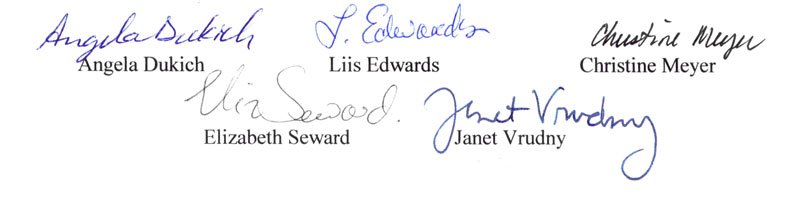 Angela Dukich L. Edwards Christine Meyer
Angela Dukich Liis Edwards Christine Meyer
Eliz Seward. Janet Vrudny
Elizabeth Seward Janet Vrudny